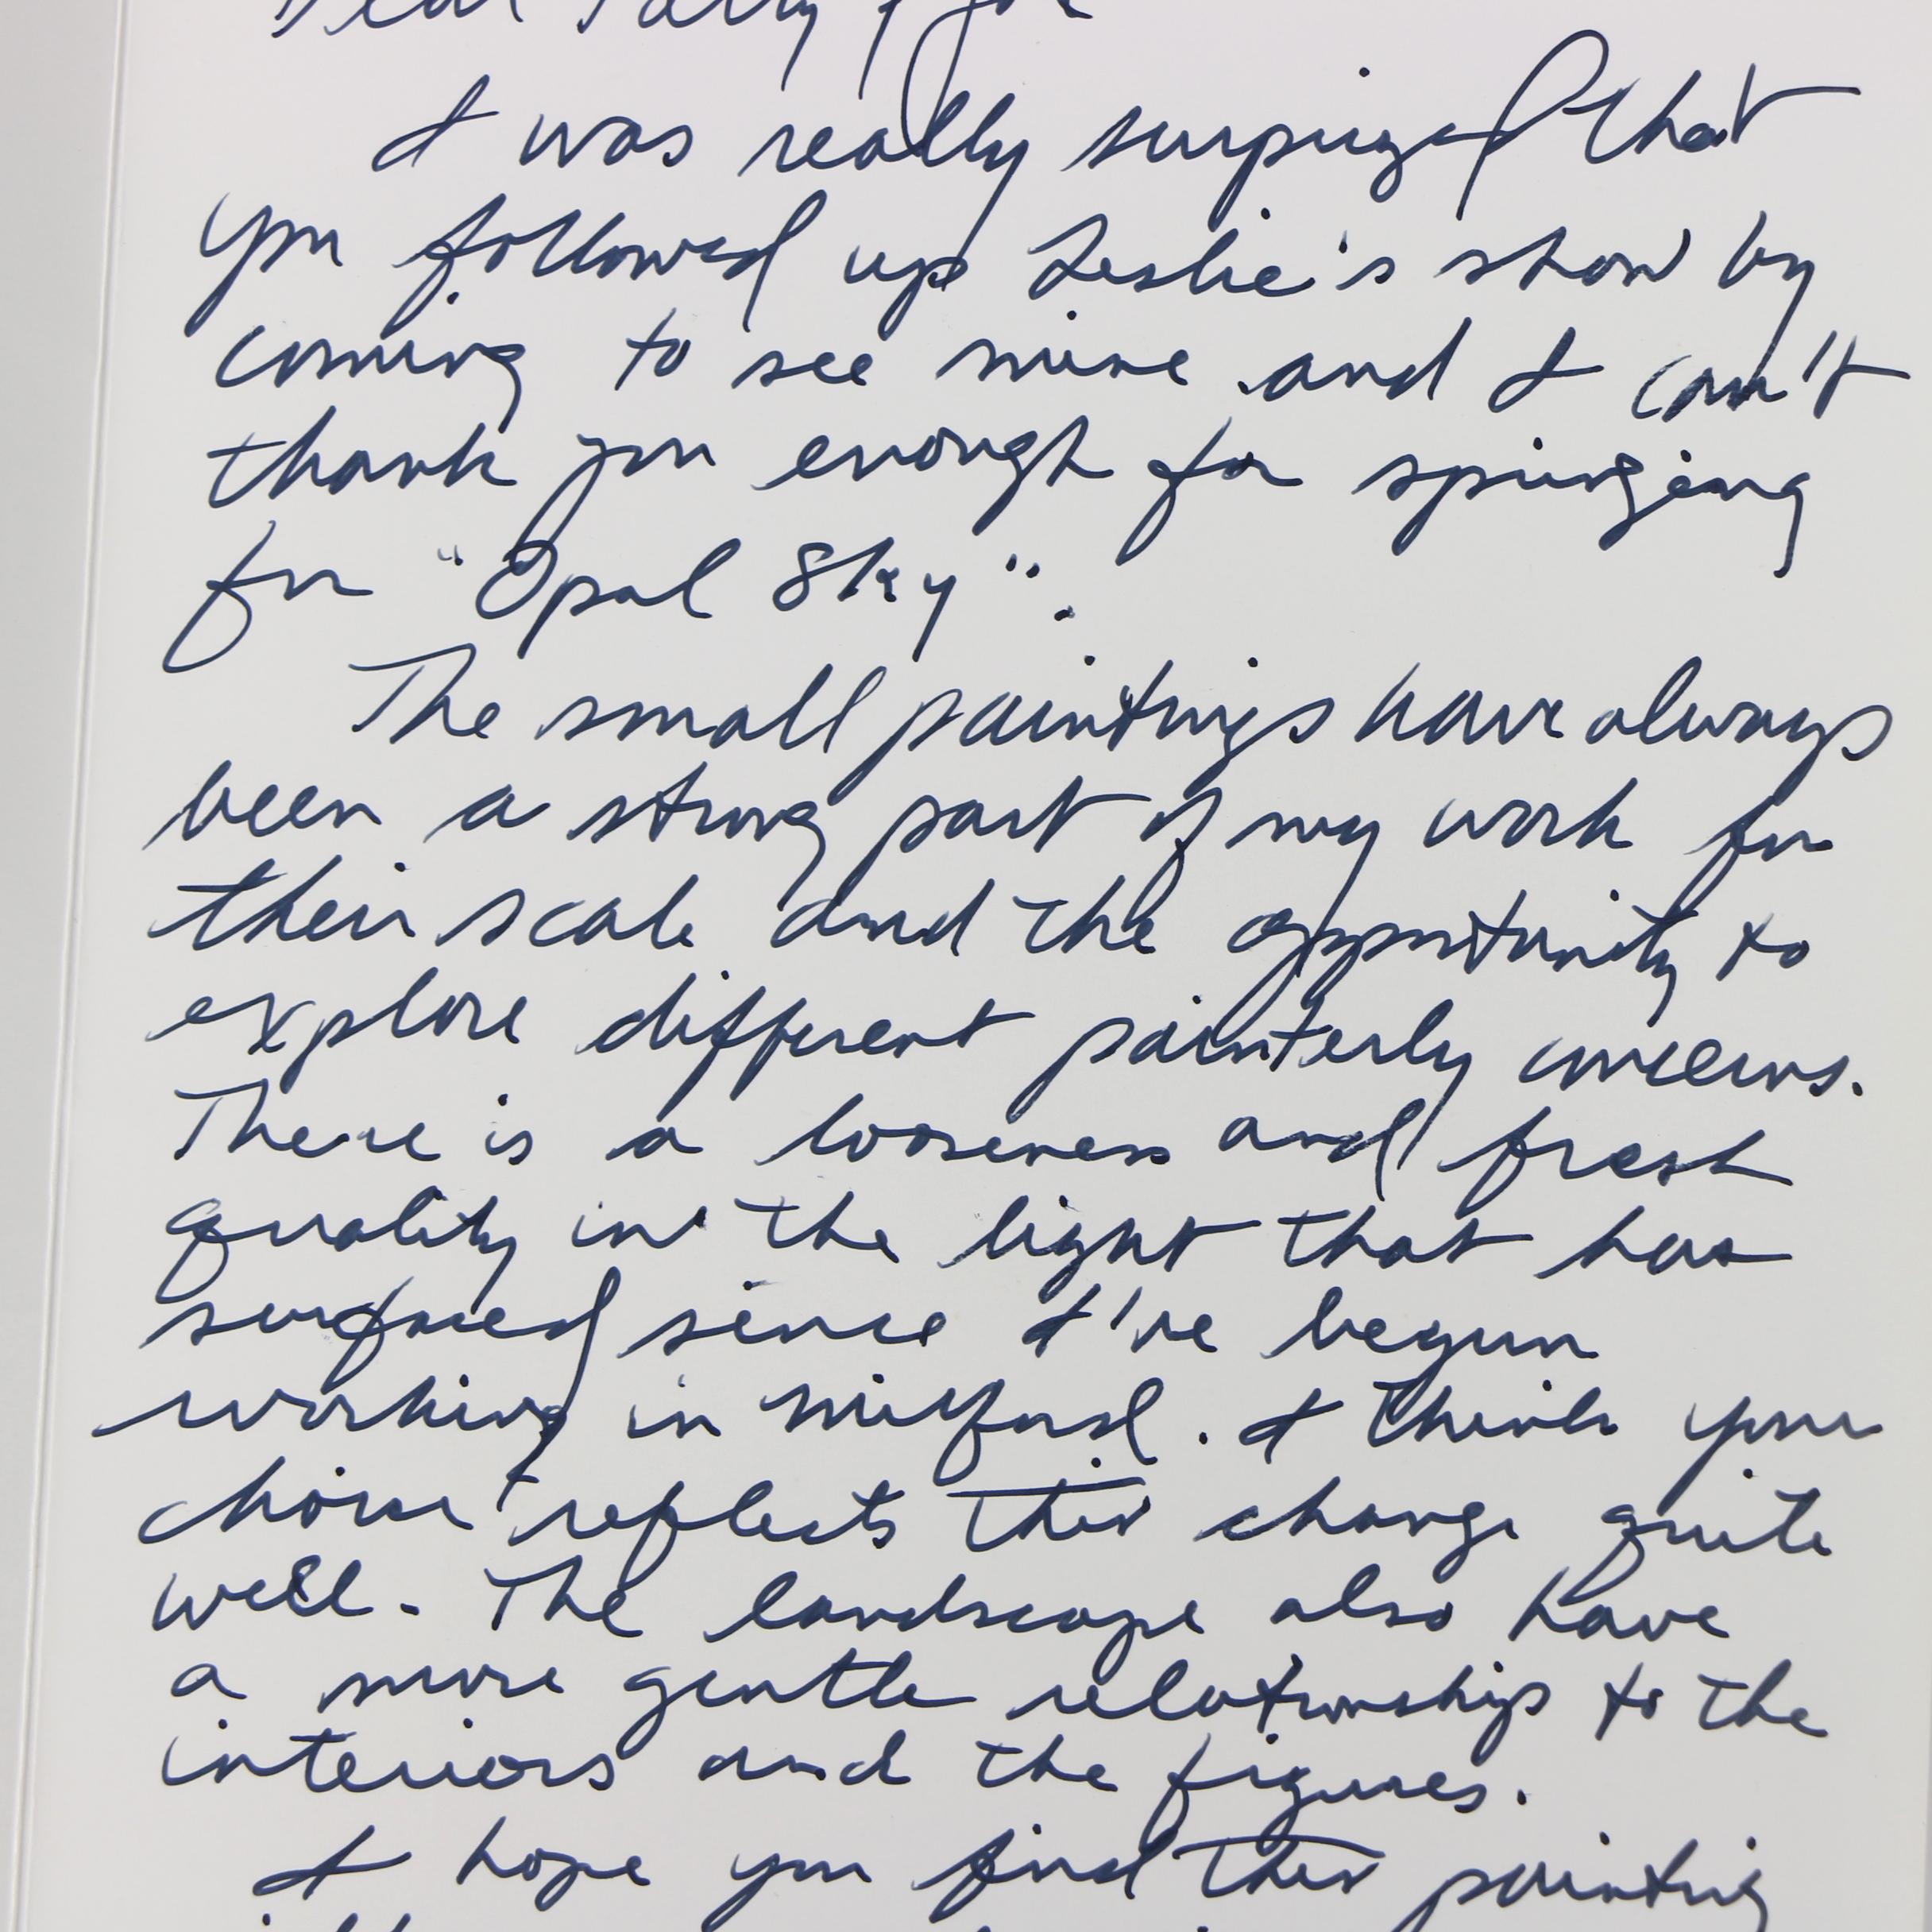 Dear
I was really surprized that
you followed up Leslie's show by
coming to see mine and I can't
thank you enough for springing
for "Opal Sky".
The small paintings have always
been a strong part of my work for
their scale and the opportunity to
explore different painterly concerns.
There is a looseness and fresh
quality in the light that has
surfaced since I've begun
working in Milford. I think your
choice reflects this change quite
well. The landscape also have
a more gentle relationship to the
interiors and the figures.
I hope you find this painting